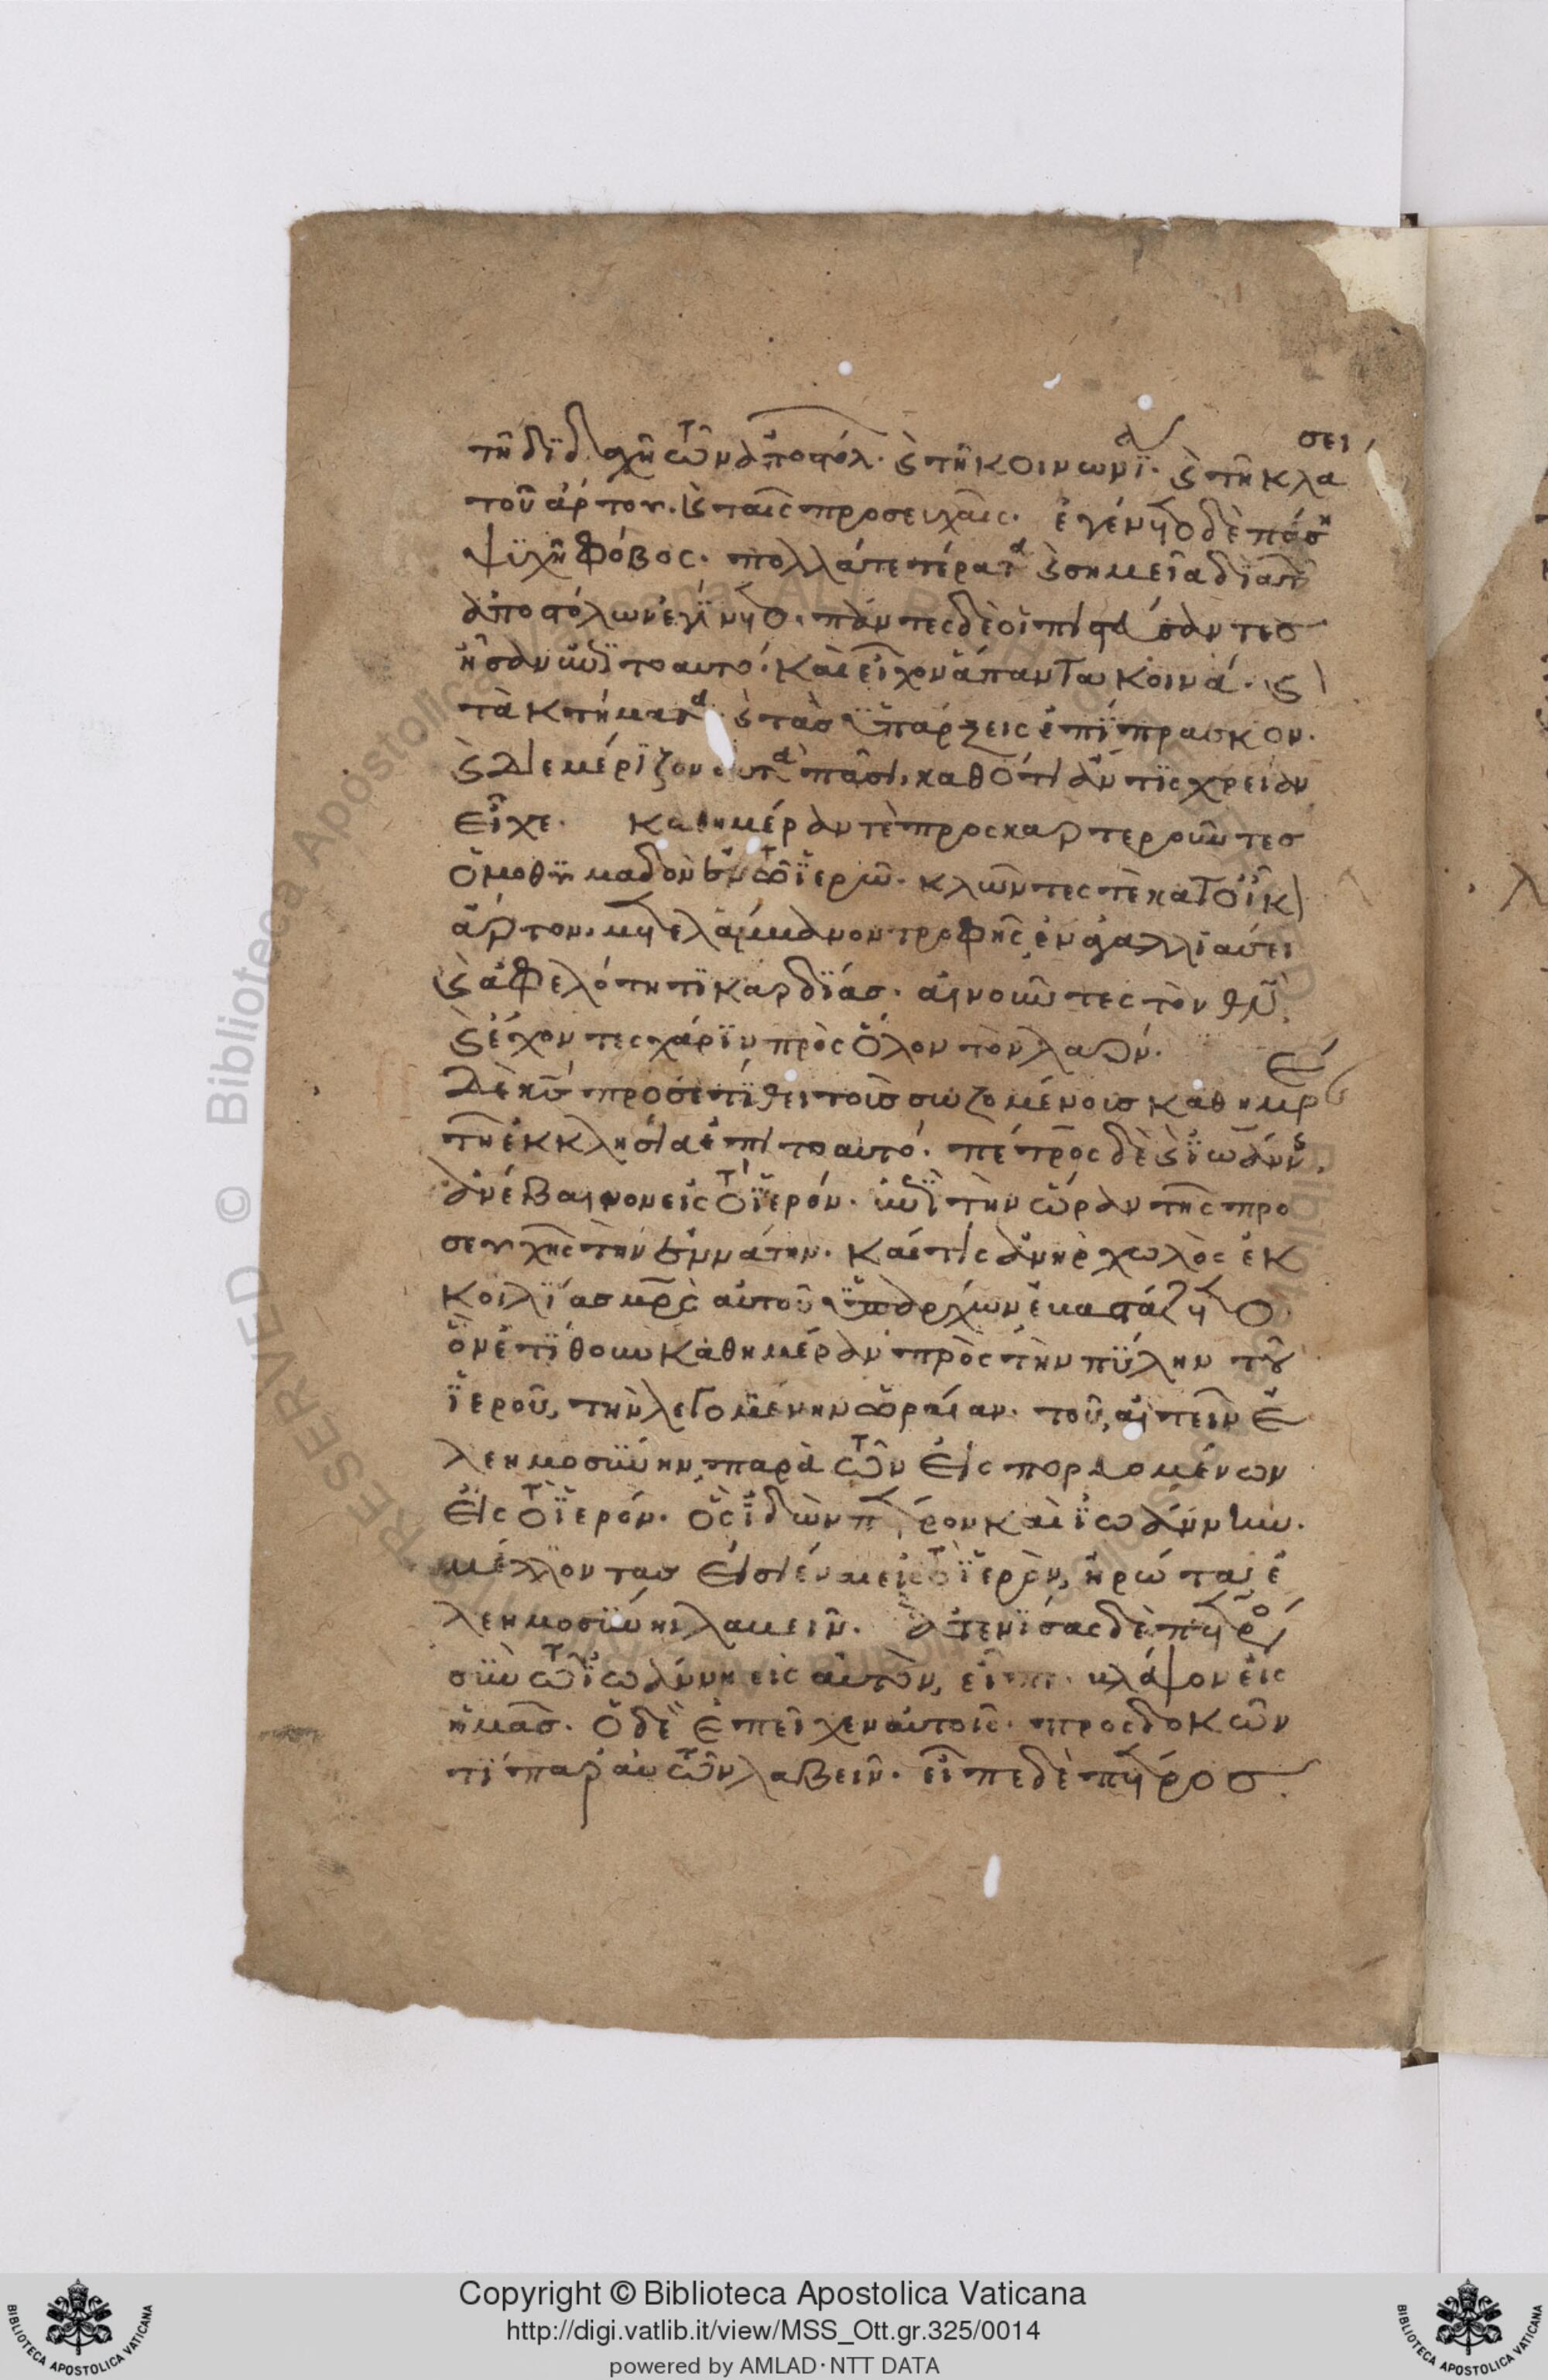 τῆ διδαχῆ τῶν ἀποστόλ· ϗ τῆ κοινωνϊα· ϗ τῆ κλάσει
τοῦ ἄρτου· ϗ ταῖς προσευχαῖς· ἐγένετο δὲ πάση
ψϋχῆ φόβος· πολλά τε τέρατα ϗ σημεῖα δϊὰ τῶν
ἀποστόλων ἐγϊνετο· πάντες δὲ οἱ πιστεύσαντες
ἦσαν ἐπῒ το αυτό· καὶ εἶχον ἅπαντα κοινά· ϗ
τὰ κτήματα· ϗ τὰς ὑπάρξεις ἐπϊπρασκον·
ϗ διεμέρϊζον αυτὰ πᾶσι, καθότι ἄν τϊς χρείαν
εἶχε· καθημέραν τὲ προσκαρτεροῦντες
ὁμοθϋμαδὸν ἐν τῶ ἱερῶ· κλῶντες τὲ κατοἶκον
ἄρτον· μετελάμβανον τροφῆς ἐν ἀγαλλιάσει
ϗ ἀφελότητϊ καρδϊάς· αἰνοῦντες τὸν θν
ϗ ἔχοντες χάρϊν πρὸς ὅλον τὸν λαόν· ὁ
δὲ κς προσετϊθει τοῖς σωζομένοις καθημέραν
τῆ ἐκκλησία ἐπι το αυτό· πέτρος δὲ ϗ ϊωάννης
ἀνέβαινον εἰς τὸ ἱερόν· ἐπῒ τὴν ὥραν τῆς προ
σευχῆς τὴν ἐννάτην· καί τις ἀνὴρ χωλὸς ἐκ
κοιλϊας μρς αὐτοῦ ὑπάρχων ἐβαστάζετο·
ὃν ἐτϊθουν καθημέραν πρὸς τὴν πϋλην τοῦ
ἱεροῦ, τὴν λεγομένην ὡραίαν· τοῦ αἰτεῖν ἐ
λεημοσϋνην παρὰ τῶν εἰσπορευομένων
εἰς τὸ ἱερόν· ὃς ἰδὼν πέτρον καὶ ϊωάννην·
μέλλοντας εἰσιέναι εἰς τὸ ἱερὸν, ἠρώτα ἐ
λεημοσϋνην λαβεῖν· ἀτενϊσας δὲ πετρος
σϋν τῶ ϊωάννη εἰς αὐτὸν, εἶπε· βλέψον εἰς
ἡμᾶς· ὁ δὲ ἐπεῖχεν αὐτοῖς· προσδοκῶν
τϊ παρ' αὐτῶν λαβεῖν· εἶπε δὲ πέτρος
Copyright © Biblioteca Apostolica Vaticana
http://digi.vatlib.it/view/MSS_Ott.gr.325/0014
powered by AMLAD·NTT DATA